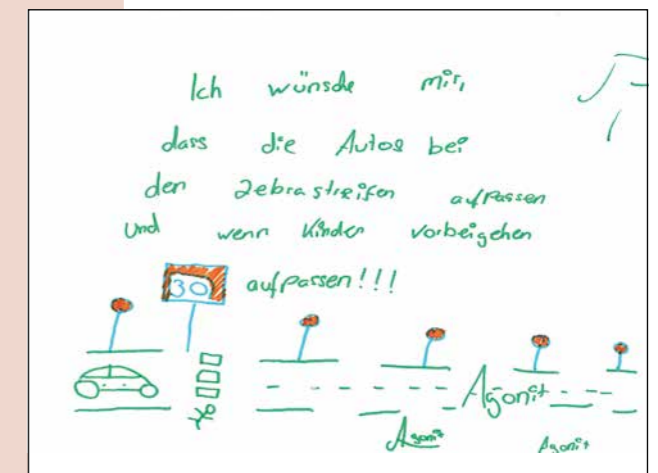 Ich wünsche mir,
dass die Autos bei
den Zebrastreifen aufpassen
und wenn Kinder vorbeigehen
aufpassen!!!
30
Agonit
Agonit
Agonit